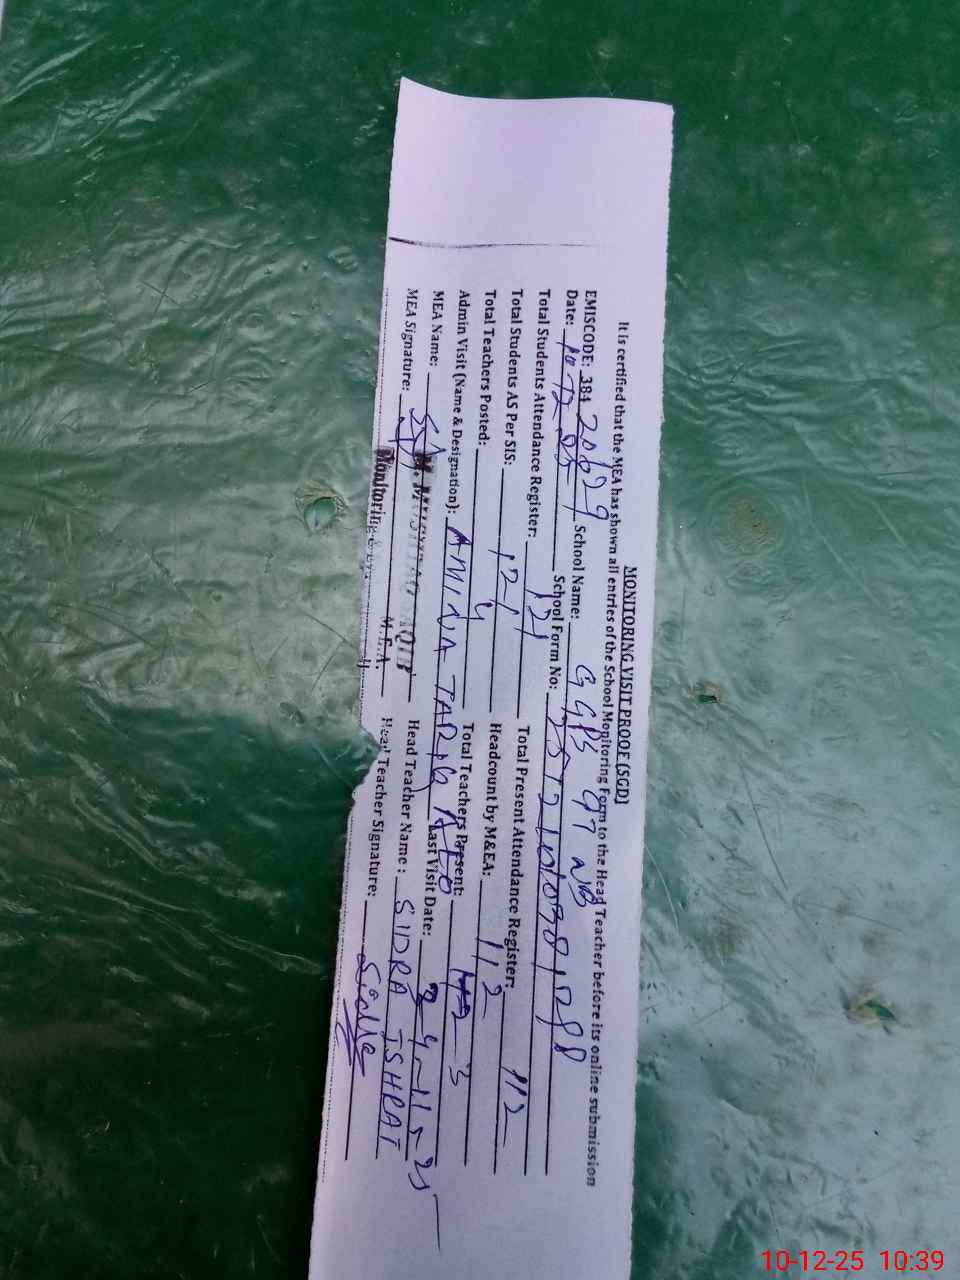 MONITORING VISIT PROOF (SGD)
It is certified that the MEA has shown all entries of the School Monitoring Form to the Head Teacher before its online submission
EMISCODE: 384 School Name: GGPS 97 NB
Date: 10-12-25 School Form No:
Total Students Attendance Register: 121 Total Present Attendance Register: 112
Total Students AS Per SIS: 121 Headcount by M&EA: 112
Total Teachers Posted: 4 Total Teachers Present: 3
Admin Visit (Name & Designation): AMINA TARIQ AEO Last Visit Date: 24-11-25
MEA Name: M. MUSHTAQ SAQIB Head Teacher Name: SIDRA ISHRAT
MEA Signature: M.E.A. Head Teacher Signature: Sidra
Monitoring &
10-12-25 10:39